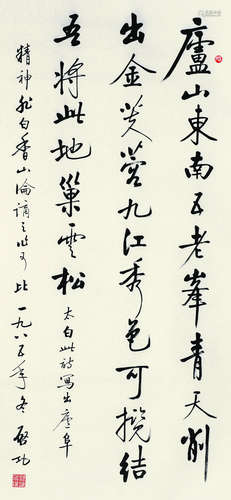 廬山東南五老峯青天削
出金芙蓉九江秀色可攬結
吾將此地巢雲松
太白此詩寫出廬阜
精神非白香山淪謫之比
一九八五年冬 啟功